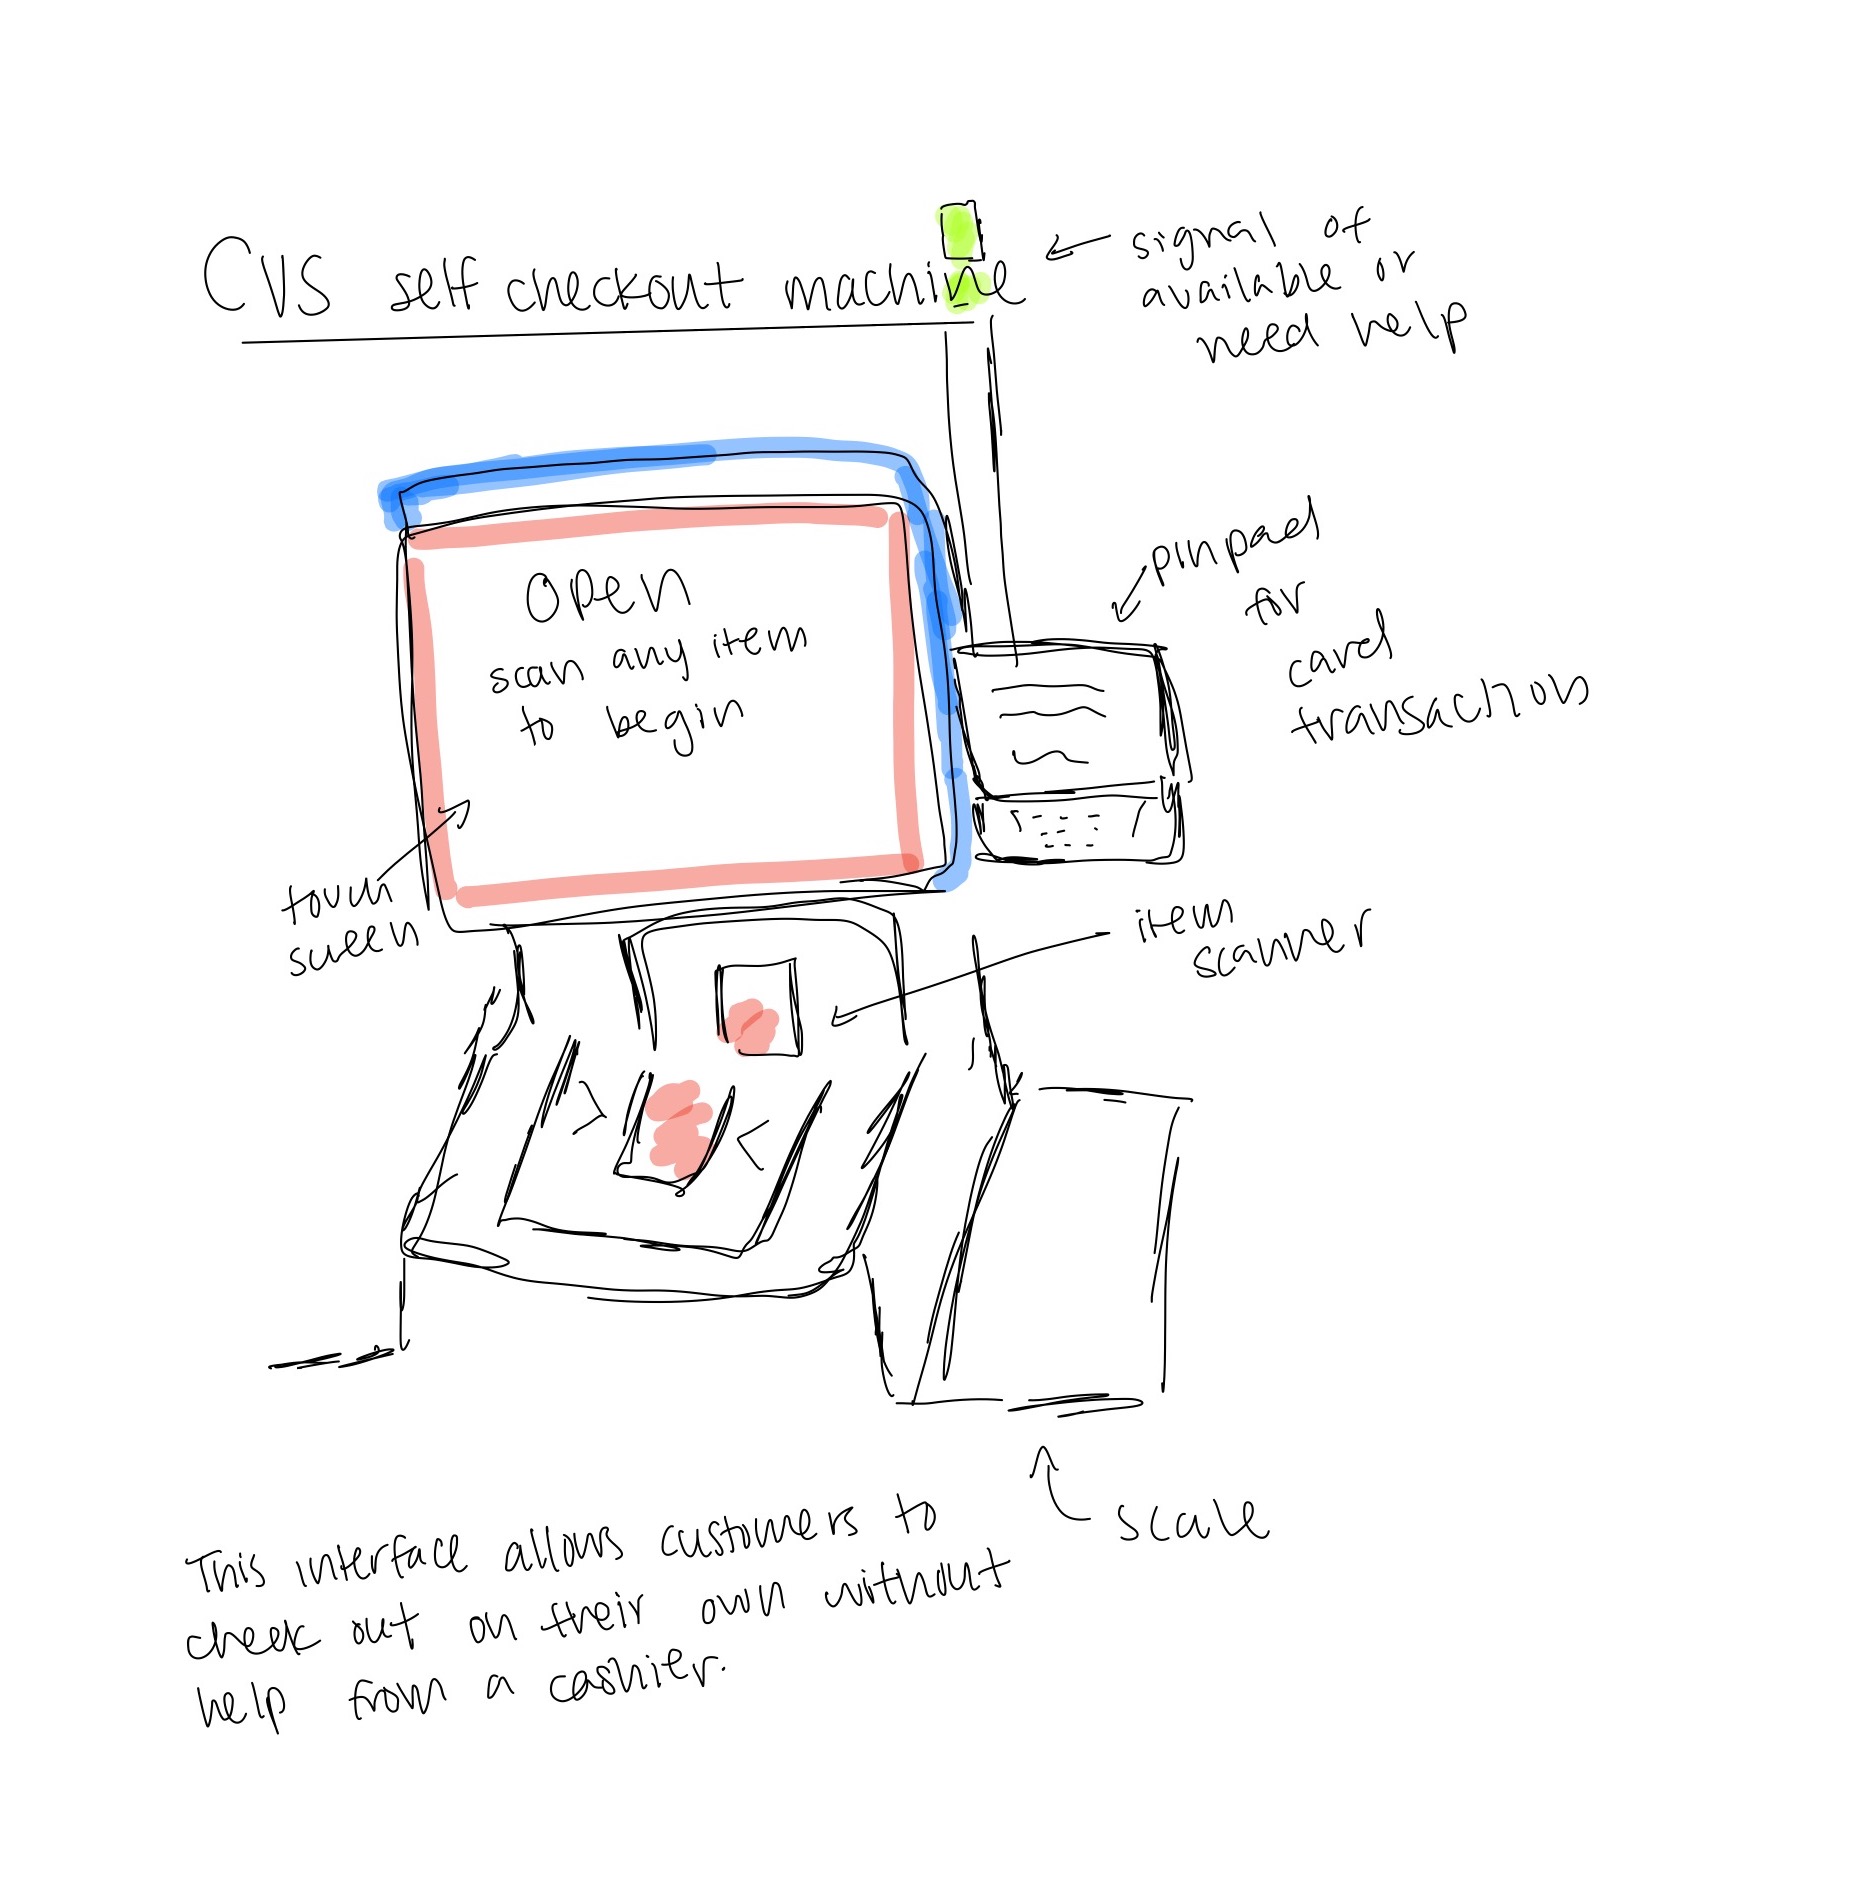 CVS self checkout machine
signal of
available or
need help
Open
scan any item
to begin
pinpad
for
card
transactions
touch
screen
item
scanner
scale
This interface allows customers to
check out on their own without
help from a cashier.